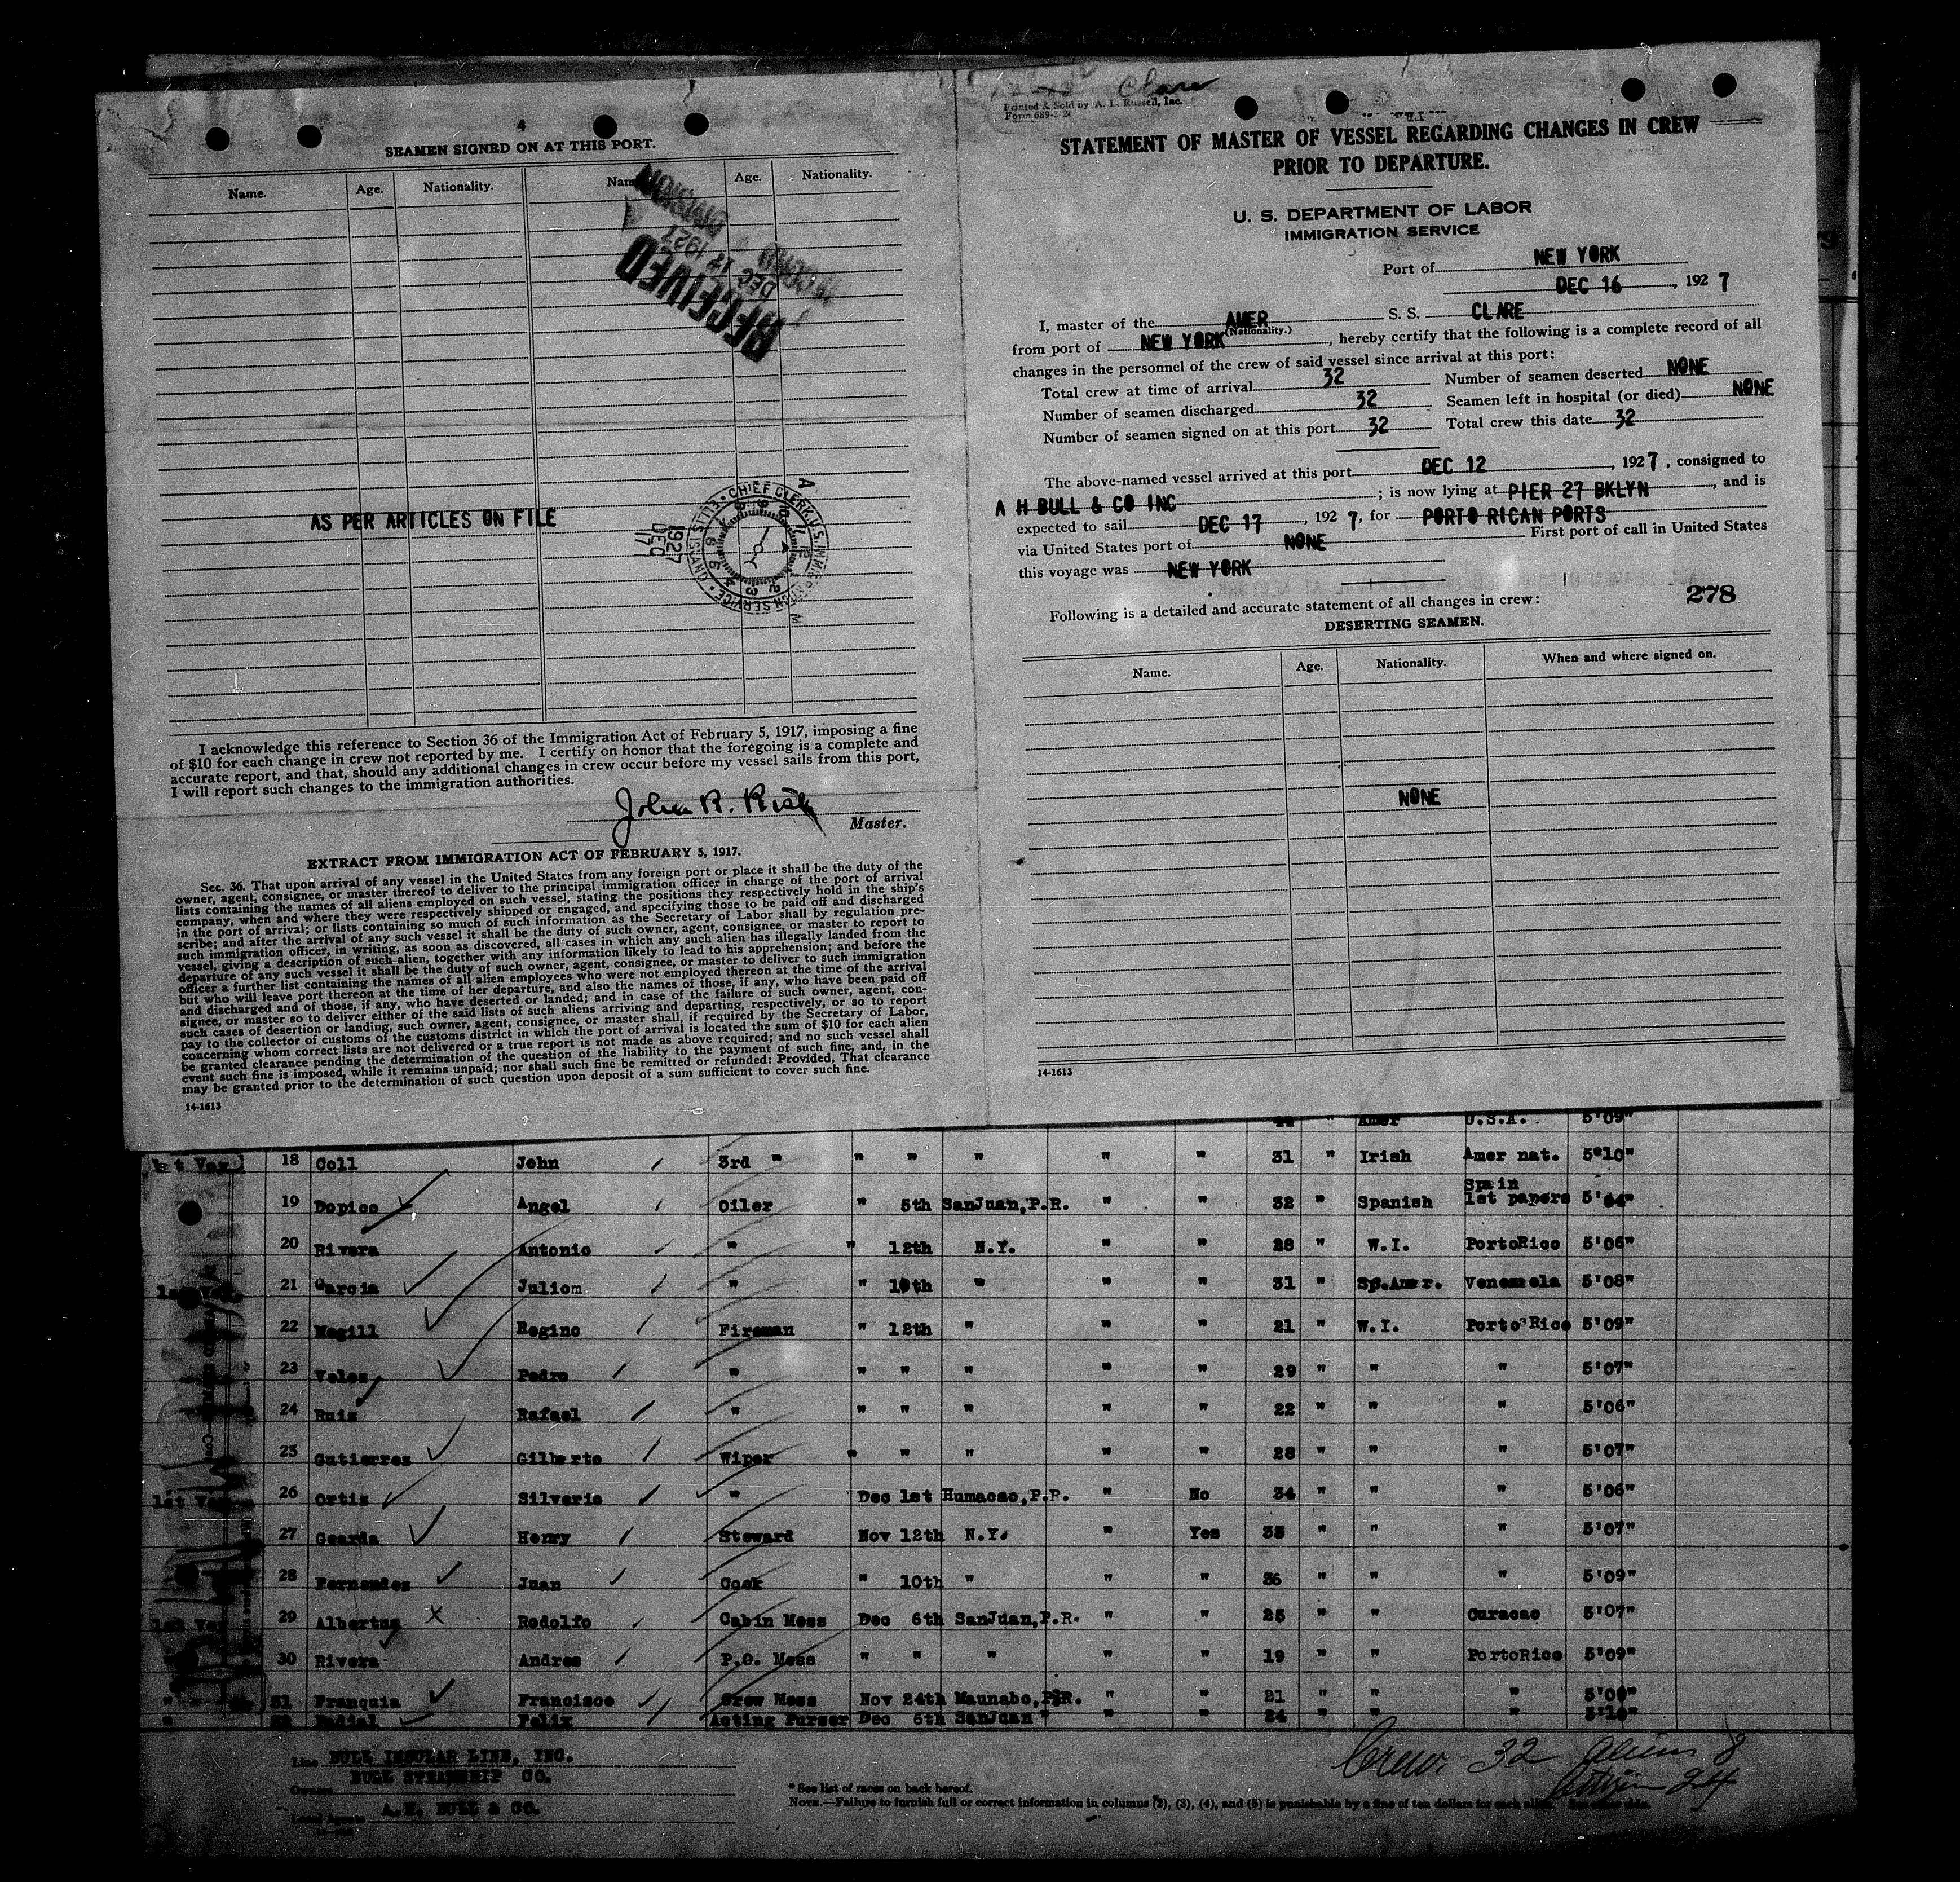 4
SEAMEN SIGNED ON AT THIS PORT.
Name. Age. Nationality. Name. Age. Nationality.
DIVISION
DEC 17 1927
RECEIVED
AS PER ARTICLES ON FILE
1927 DEC 17
CHIEF CLERK U.S. IMMIGRATION SERVICE • ELLIS ISLAND •
I acknowledge this reference to Section 36 of the Immigration Act of February 5, 1917, imposing a fine
of $10 for each change in crew not reported by me. I certify on honor that the foregoing is a complete and
accurate report, and that, should any additional changes in crew occur before my vessel sails from this port,
I will report such changes to the immigration authorities.
John R.
Master.
EXTRACT FROM IMMIGRATION ACT OF FEBRUARY 5, 1917.
Sec. 36. That upon arrival of any vessel in the United States from any foreign port or place it shall be the duty of the
owner, agent, consignee, or master thereof to deliver to the principal immigration officer in charge of the port of arrival
lists containing the names of all aliens employed on such vessel, stating the positions they respectively hold in the ship's
company, when and where they were respectively shipped or engaged, and specifying those to be paid off and discharged
in the port of arrival; or lists containing so much of such information as the Secretary of Labor shall by regulation pre-
scribe; and after the arrival of any such vessel it shall be the duty of such owner, agent, consignee, or master to report to
such immigration officer, in writing, as soon as discovered, all cases in which any such alien has illegally landed from the
vessel, giving a description of such alien, together with any information likely to lead to his apprehension; and before the
departure of any such vessel it shall be the duty of such owner, agent, consignee, or master to deliver to such immigration
officer a further list containing the names of all alien employees who were not employed thereon at the time of the arrival
but who will leave port thereon at the time of her departure, and also the names of those, if any, who have been paid off
and discharged and of those, if any, who have deserted or landed; and in case of the failure of such owner, agent, con-
signee, or master so to deliver either of the said lists of such aliens arriving and departing, respectively, or so to report
such cases of desertion or landing, such owner, agent, consignee, or master shall, if required by the Secretary of Labor,
pay to the collector of customs of the customs district in which the port of arrival is located the sum of $10 for each alien
concerning whom correct lists are not delivered or a true report is not made as above required; and no such vessel shall
be granted clearance pending the determination of the question of the liability to the payment of such fine, and, in the
event such fine is imposed, while it remains unpaid; nor shall such fine be remitted or refunded: Provided, That clearance
may be granted prior to the determination of such question upon deposit of a sum sufficient to cover such fine.
14-1613
Clare
Printed & Sold by A. L. Russell, Inc.
Form 689-
STATEMENT OF MASTER OF VESSEL REGARDING CHANGES IN CREW
PRIOR TO DEPARTURE.
U. S. DEPARTMENT OF LABOR
IMMIGRATION SERVICE
Port of NEW YORK
DEC 16, 1927
I, master of the AMER S. S. CLARE
(Nationality.)
from port of NEW YORK, hereby certify that the following is a complete record of all
changes in the personnel of the crew of said vessel since arrival at this port:
Total crew at time of arrival 32 Number of seamen deserted NONE
Number of seamen discharged 32 Seamen left in hospital (or died) NONE
Number of seamen signed on at this port 32 Total crew this date 32
The above-named vessel arrived at this port DEC 12, 1927, consigned to
A H BULL & CO INC; is now lying at PIER 27 BKLYN, and is
expected to sail DEC 17, 1927, for PORTO RICAN PORTS
via United States port of NONE First port of call in United States
this voyage was NEW YORK
278
Following is a detailed and accurate statement of all changes in crew:
DESERTING SEAMEN.
Name. Age. Nationality. When and where signed on.
NONE
14-1613
" Amer U.S.A. 5'09"
1st Voy 18 Coll John 3rd " " " " " " 31 " Irish Amer nat. 5'10"
19 Dopico Angel Oiler " 5th SanJuan,P.R. " " 32 " Spanish Spain 1st papers 5'04"
20 Rivera Antonio " " 12th N.Y. " " 28 " W.I. PortoRico 5'06"
21 Garcia Juliom " " 10th " " " 31 " Sp.Amer. Venezuela 5'08"
22 Magill Regino Fireman " 12th " " " 21 " W.I. Porto Rico 5'09"
23 Velez Pedro " " " " " " 29 " " " 5'07"
24 Ruiz Rafael " " " " " " 22 " " " 5'06"
25 Gutierrez Gilberto Wiper " " " " " 28 " " " 5'07"
1st Voy 26 Ortiz Silverio " Dec 1st Humacao,P.R. " No 34 " " " 5'06"
27 Gearda Henry Steward Nov 12th N.Y. " Yes 35 " " " 5'07"
28 Fernandez Juan Cook " 10th " " " 36 " " " 5'09"
1st Voy 29 Albertus Rodolfo Cabin Mess Dec 6th SanJuan,P.R. " " 25 " " Curacao 5'07"
30 Rivera Andres P.O. Mess " " " " " 19 " " PortoRico 5'09"
" 31 Franquia Francisco Crew Mess Nov 24th Maunabo,P.R. " " 21 " " "
" 32 Felix Acting Purser Dec 6th SanJuan " " " 24 " " " 5'10"
Line BULL INSULAR LINE, INC.
Owners BULL STEAMSHIP CO.
Local Agents A.H. BULL & CO.
* See list of races on back hereof.
NOTE.—Failure to furnish full or correct information in columns (2), (3), (4), and (5) is punishable by a fine of ten dollars for each alien. See other side.
Crew. 32 Aliens 8
Citizen 24